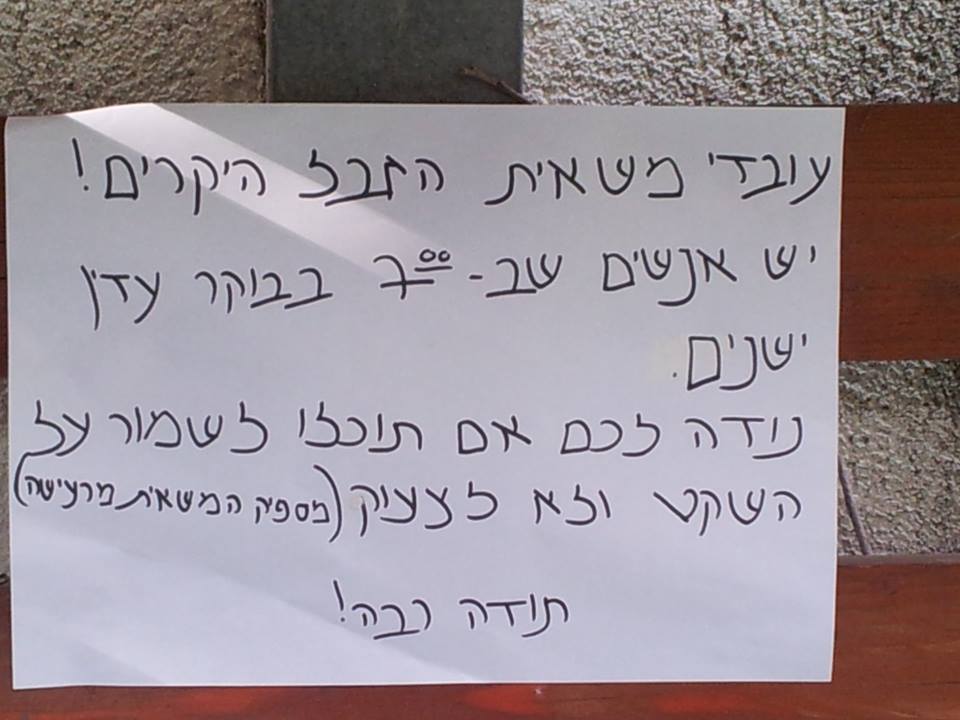 עובדי משאית הזבל היקרים!
יש אנשים שב- 7⁰⁰ בבוקר עדין
ישנים.
נודה לכם אם תוכלו לשמור על
השקט ולא לצעוק (מספיק המשאית מרעישה)
תודה רבה!